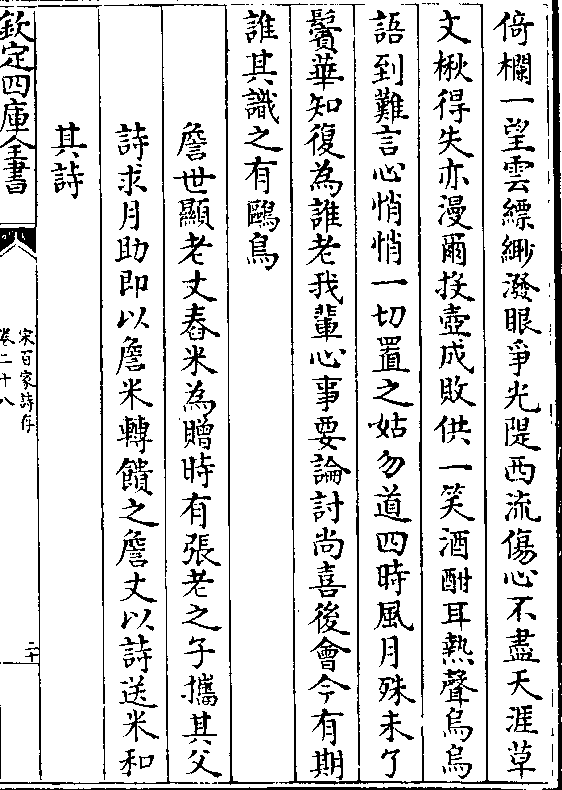 倚欄一望雲縹緲潑眼爭光隄西流傷心不盡天涯草
文楸得失亦漫爾投壺成敗供一笑酒酣耳熱聲烏烏
語到難言心悄悄一切置之姑勿道四時風月殊未了
鬢華知復為誰老我輩心事要論討尚喜後會今有期
誰其識之有鷗鳥
詹世顯老丈舂米為贈時有張老之子攜其父
詩求月助即以詹米轉饋之詹丈以詩送米和
其詩
欽定四庫全書
宋百家詩存
卷二十八
二十